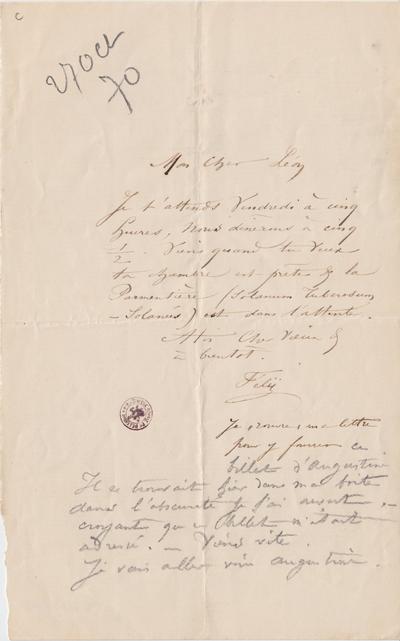 27 Oct
70
Mon Cher Léon
Je t'attends Vendredi à cinq
heures, nous dînerons à cinq
½. Viens quand tu veux
ta chambre est prête & la
Parmentière (Solanum Tuberosum
— Solanées) est dans l'attente.
A toi Cher Vieux &
à bientôt.
Félix
Je rouvre ma lettre
pour y fourrer ce
billet d'Augustine
Il se trouvait hier dans ma boîte
dans l'obscurité je l'ai ouvert
croyant que ce Billet m'était
adressé. — Viens vite.
Je vais aller voir Augustine.